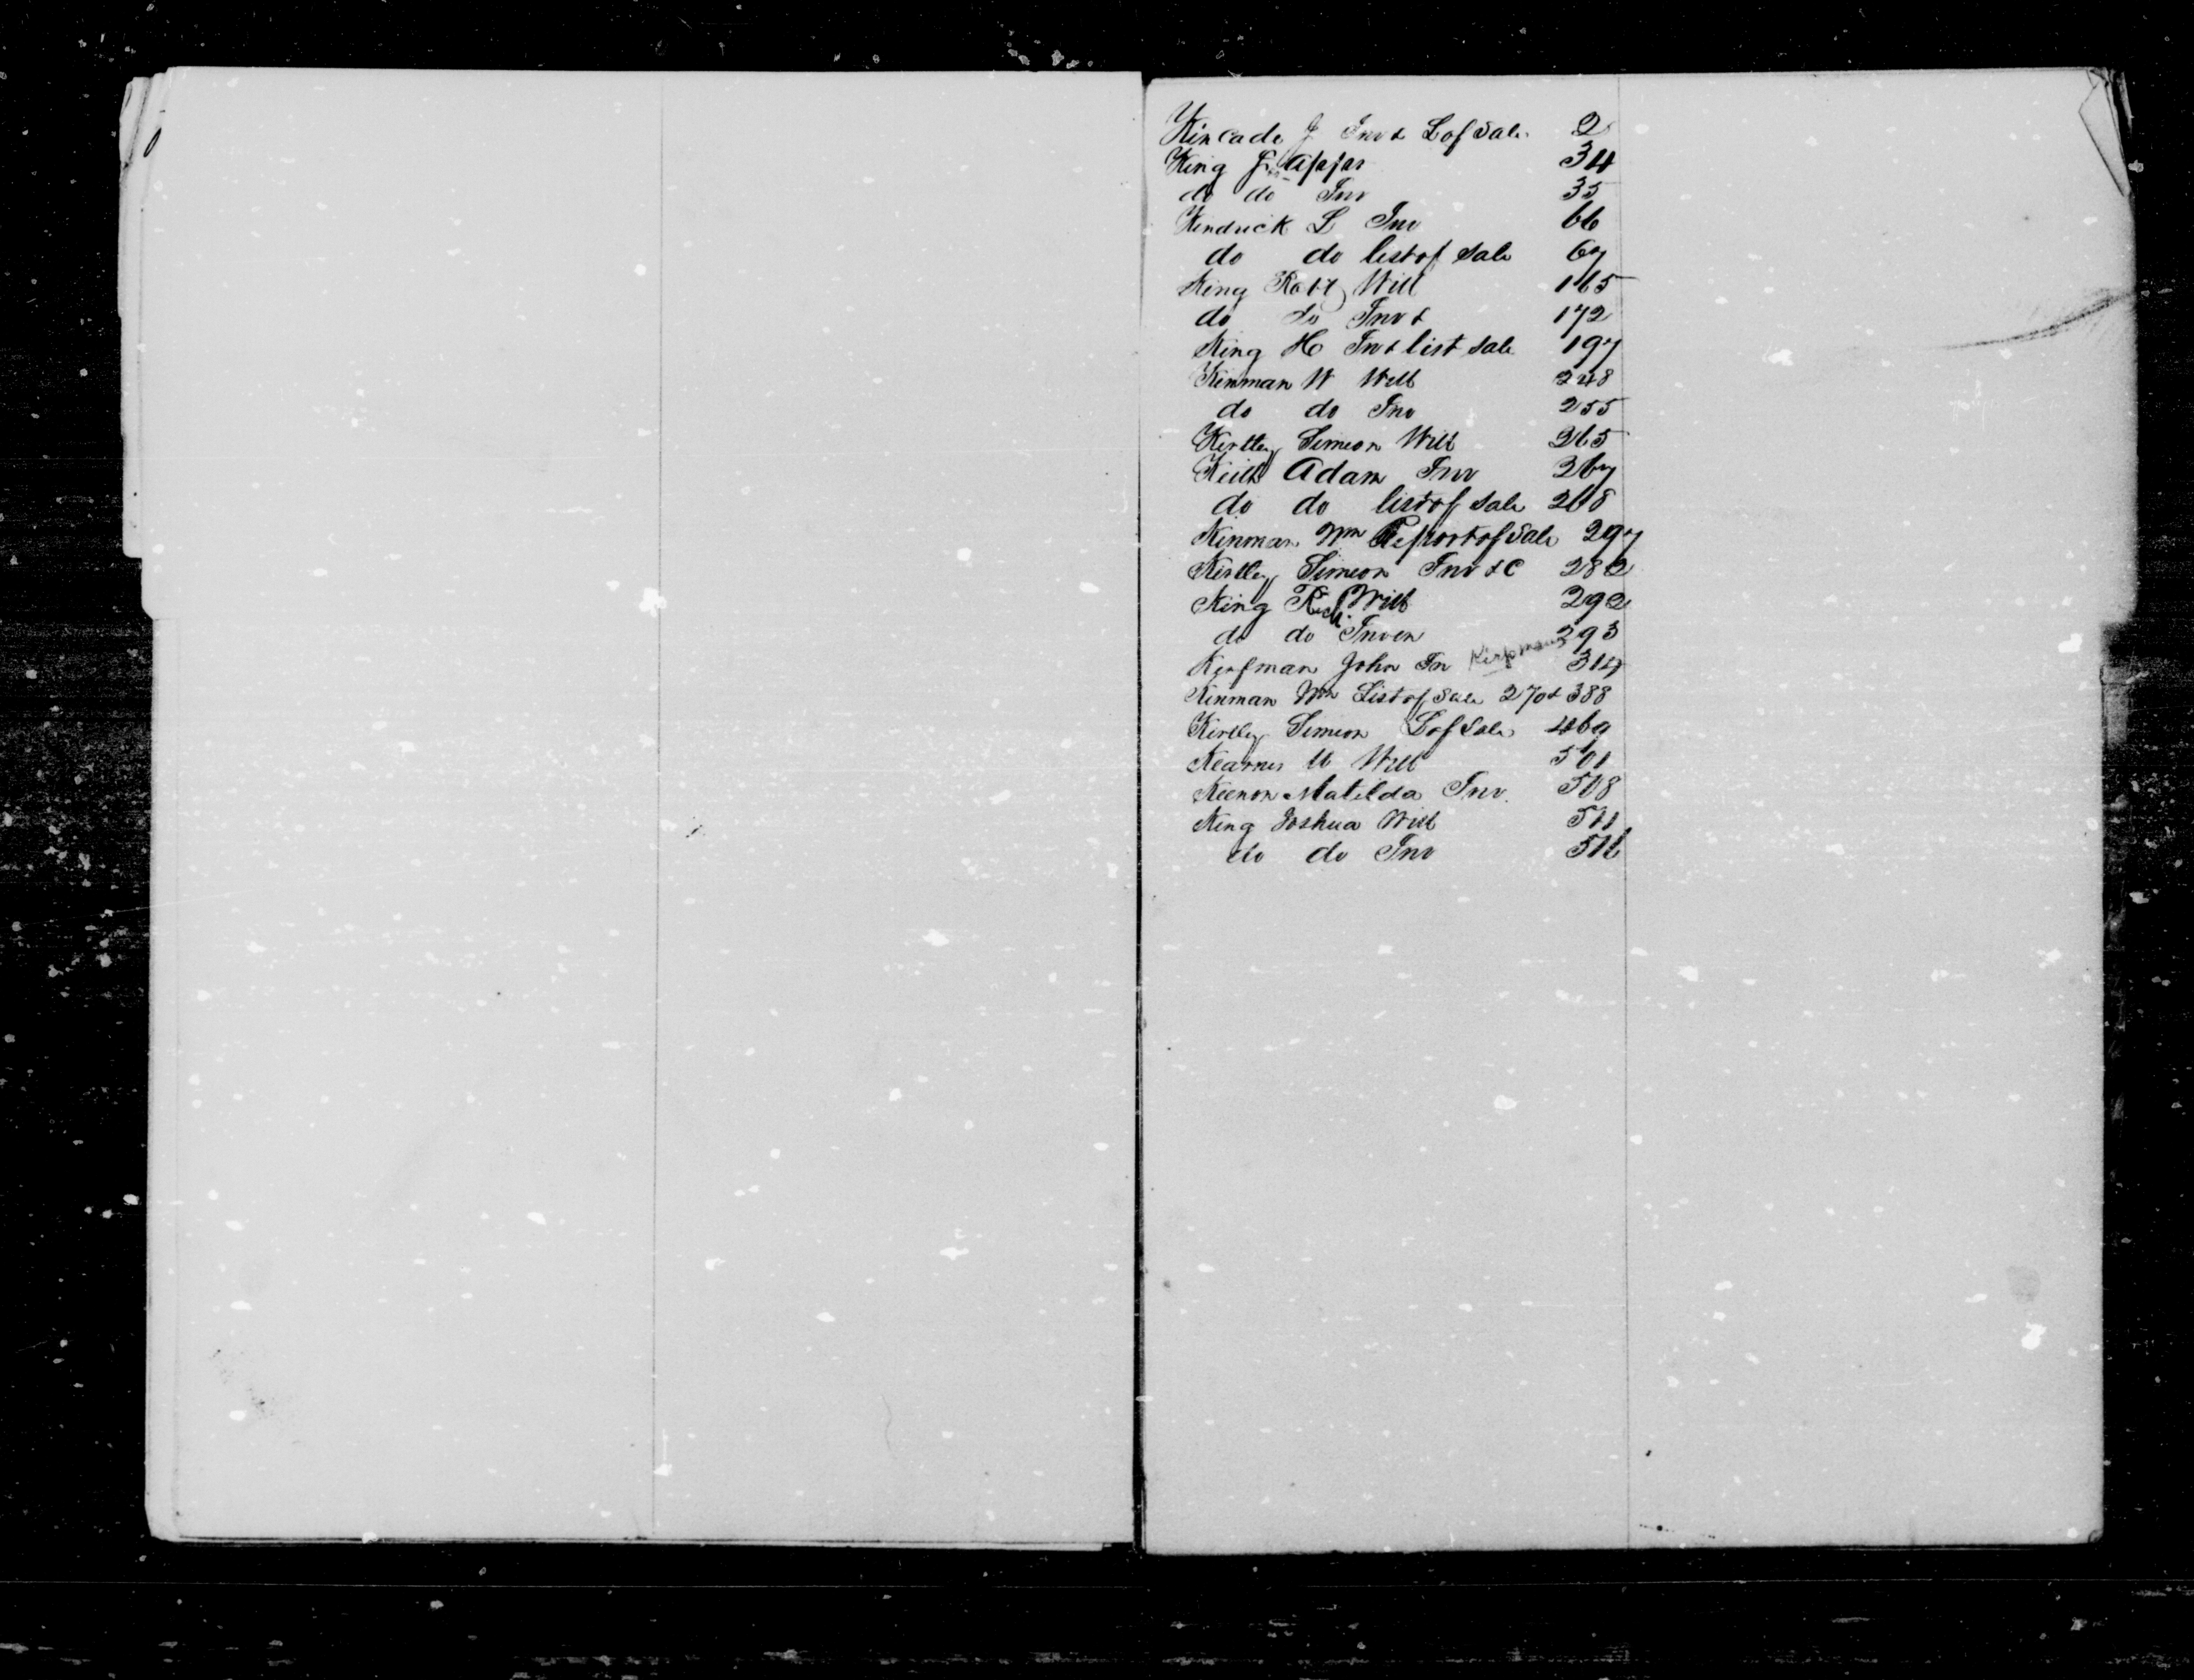 Kincade J Inv & L of Sale 2
King J Appr 34
do do Inv 35
Kendrick L Inv 66
do do list of Sale 67
King Robt Will 165
do do Inv & 172
King H In & list Sale 197
Kinman W Will 248
do do Inv 255
Kirtley Simeon Will 265
Keith Adam Inv 267
do do list of Sale 268
Kinman Wm Report of Sale 297
Kirtley Simeon Inv &C 282
King Rich. Will 292
do do Inven 293
Kerfman John In Kirpman 314
Kinman Wm List of Sale 270 & 388
Kirtley Simeon L of Sale 469
Kearnes M Will 501
Keenon Matilda Inv. 508
King Joshua Will 511
do do Inv 516